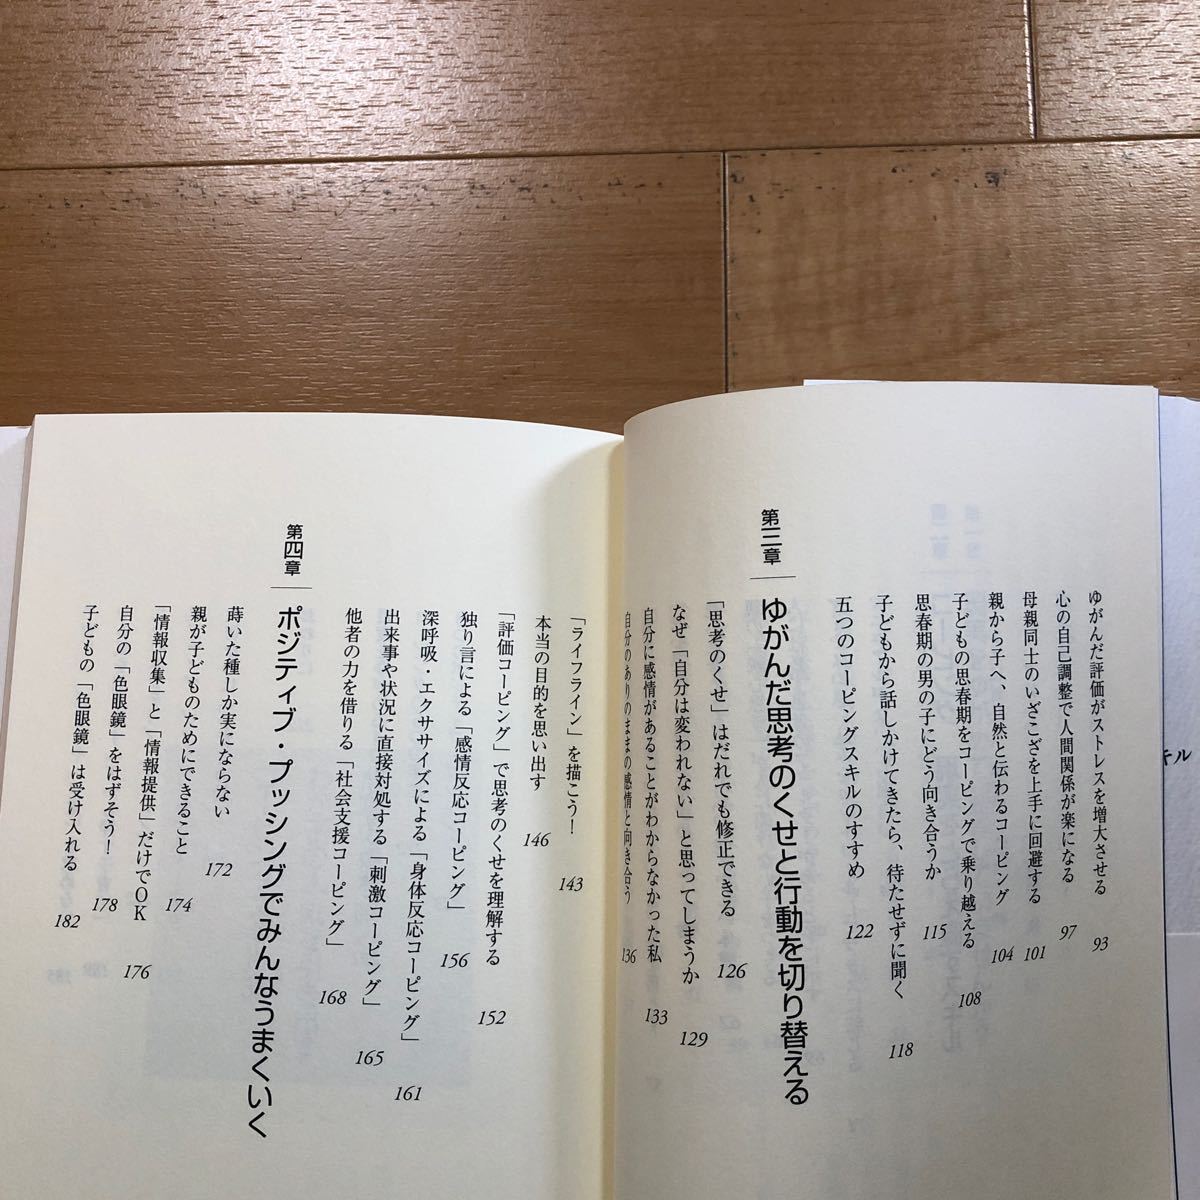 キル
ゆがんだ評価がストレスを増大させる 93
心の自己調整で人間関係が楽になる 97
母親同士のいざこざを上手に回避する 101
親から子へ、自然と伝わるコーピング 104
子どもの思春期をコーピングで乗り越える 108
思春期の男の子にどう向き合うか 115
子どもから話しかけてきたら、待たせずに聞く 118
五つのコーピングスキルのすすめ 122
第三章 ゆがんだ思考のくせと行動を切り替える
「思考のくせ」はだれでも修正できる 126
なぜ「自分は変われない」と思ってしまうか 129
自分に感情があることがわからなかった私 133
自分のありのままの感情と向き合う 136
「ライフライン」を描こう! 143
本当の目的を思い出す 146
「評価コーピング」で思考のくせを理解する 152
独り言による「感情反応コーピング」 156
深呼吸・エクササイズによる「身体反応コーピング」 161
出来事や状況に直接対処する「刺激コーピング」 165
他者の力を借りる「社会支援コーピング」 168
第四章 ポジティブ・プッシングでみんなうまくいく
蒔いた種しか実にならない 172
親が子どものためにできること 174
「情報収集」と「情報提供」だけでOK 176
自分の「色眼鏡」をはずそう! 178
子どもの「色眼鏡」は受け入れる 182